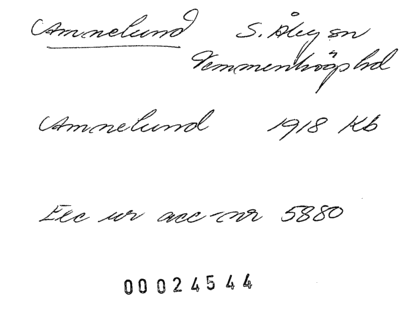 Annelund S. Åby sn
Vemmenhögs hd
Annelund 1918 Kb
Exc ur acc-nr 5880
00024544